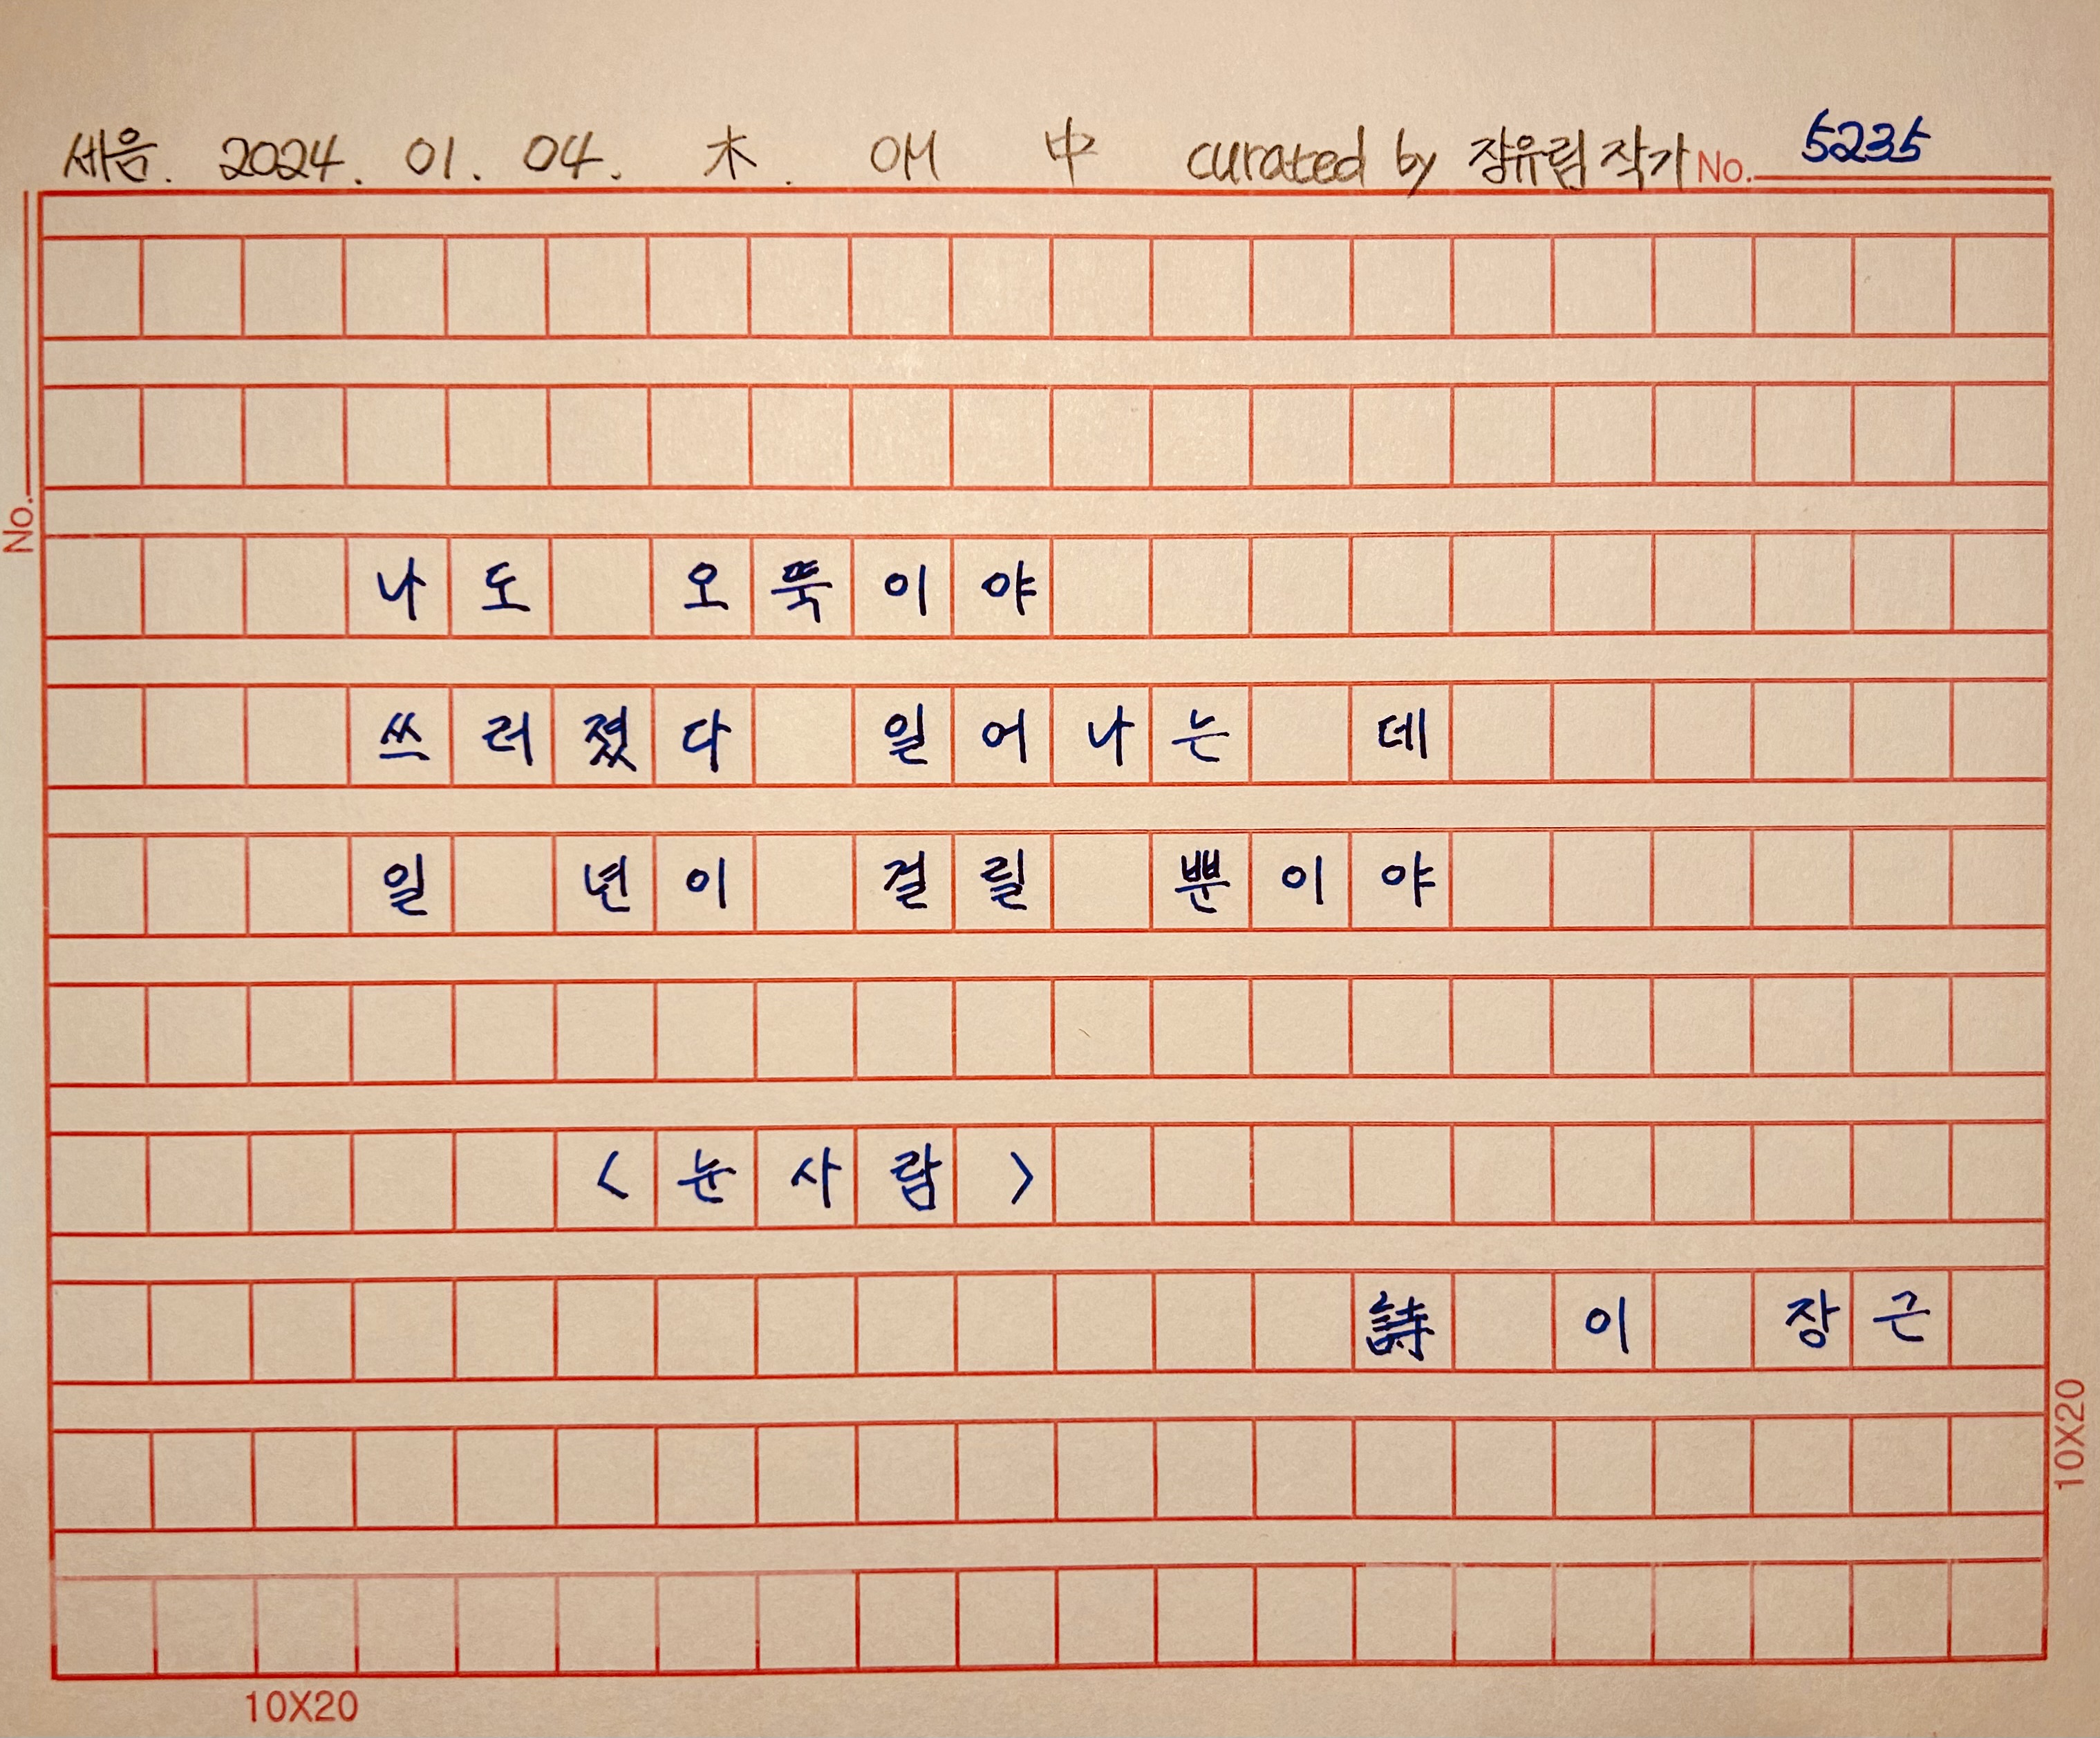 세음. 2024. 01. 04. 木. OH 中 curated by 장유림 작가 No. 5235
No.
나도 오뚝이야
쓰러졌다 일어나는 데
일 년이 걸릴 뿐이야
<눈사람>
詩 이 장근
10X20
10X20